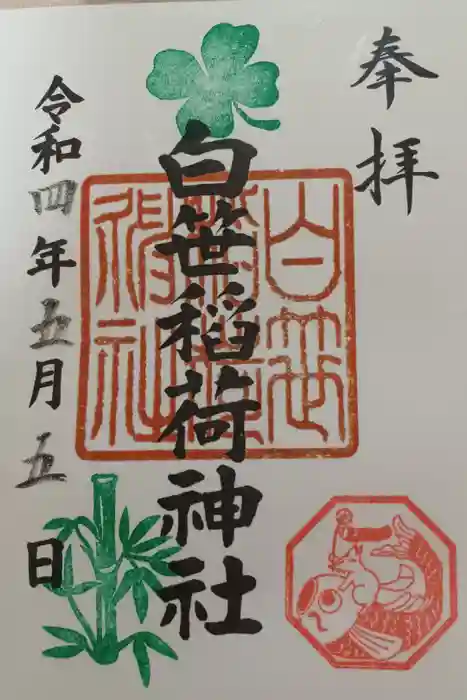 奉拝
白笹稲荷神社
白笹稲荷神社
令和四年五月五日